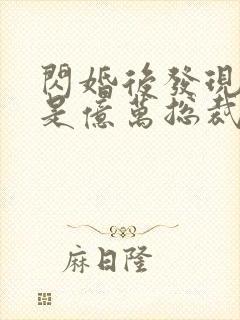 閃婚後發現
是億萬總裁
麻日隆